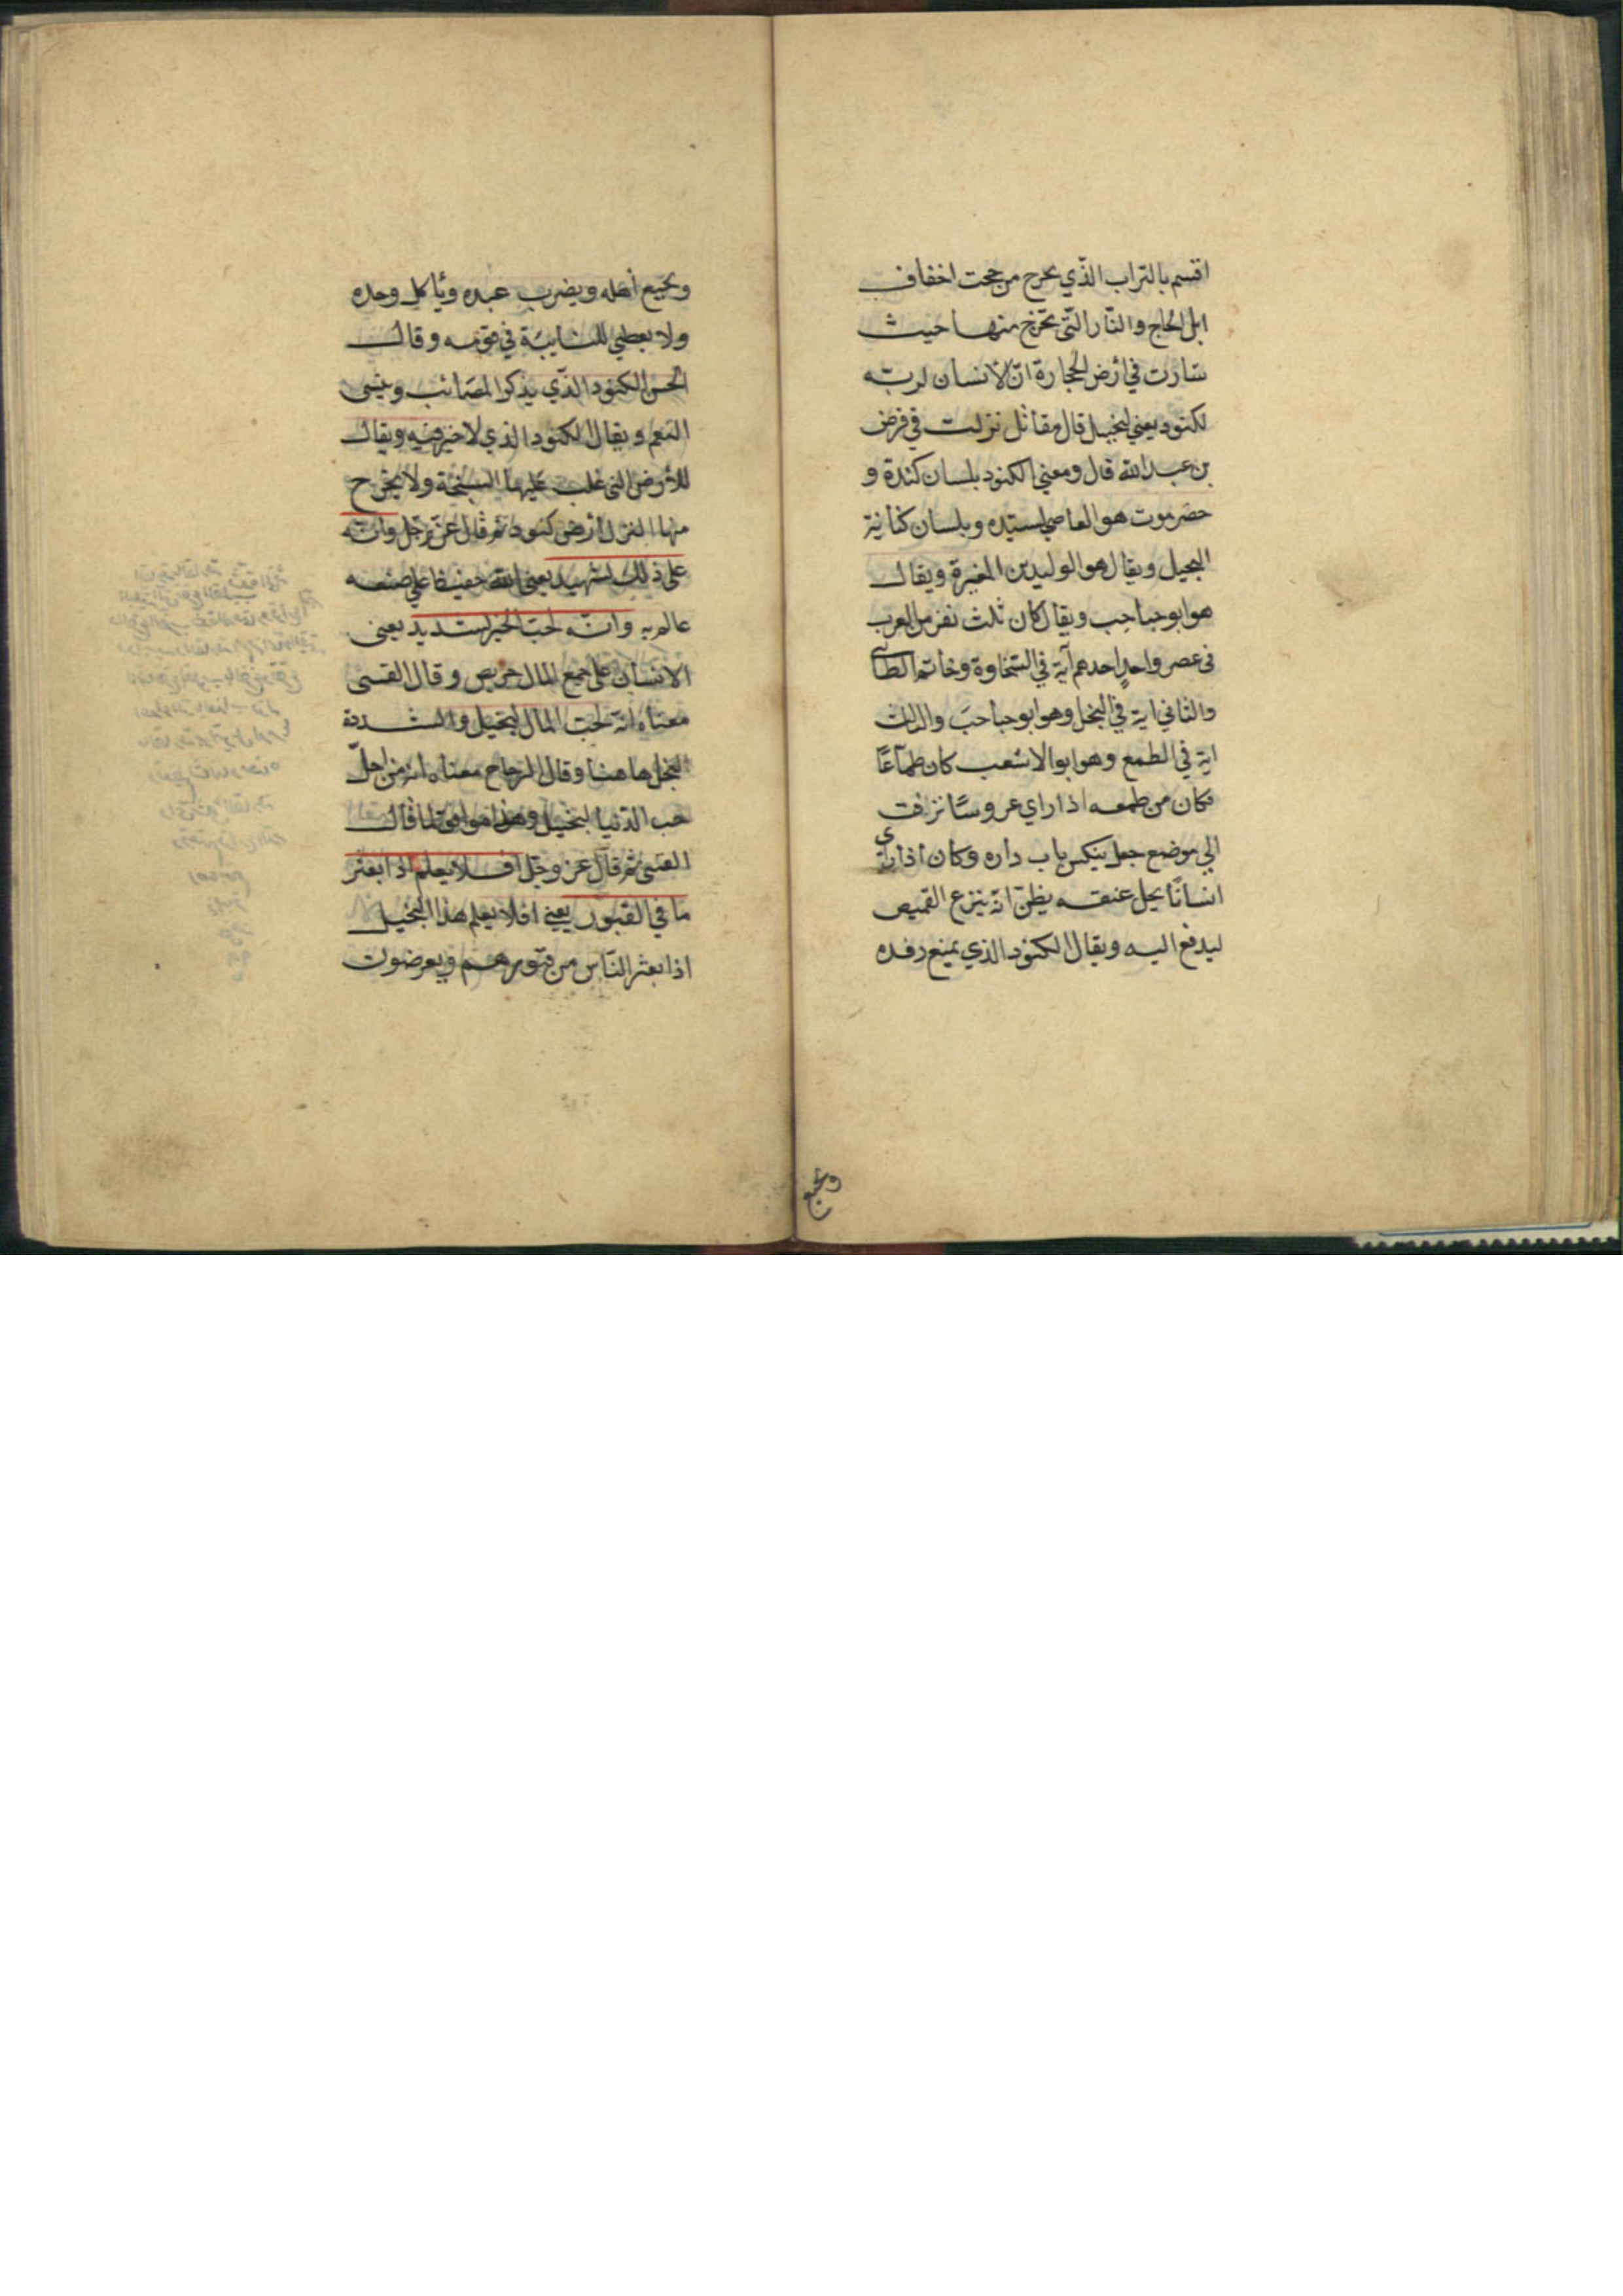 اقسم بالتراب الذّي يخرج من تحت اخفاف
ابل الحاج والنّار التّى تخرج منها حيث
سارت في أرض الحجارة انّ الأنسان لربّه
لكنود يعني لبخيل قال مقاتل نزلت في قرض
بن عبد الله قال ومعني الكنود بلسان كندة و
حضرموت هو العاصي لسيّده وبلسان كنانة
البخيل ويقال هو الوليد بن المغيرة ويقال
هو ابو حباحب ويقال كان ثلث نفر من العرب
فى عصر واحدٍ احدهم آية في السّخاوة وخاتم الطائى
والثاني اية في البخل وهو ابو حباحب والثالث
اية في الطمع وهو ابو الاشعب كان طمّاعًا
فكان من طمعه اذا راي عروسًا تزفت
الي موضع جعل ينكس باب داره وكان اذا راى
انسانًا يحل عنقه يظنّ انّه ينزع القميص
ليدفع اليه ويقال الكنود الذي يمنع رفده
ويجيع
ويجيع أهله ويضرب عبده ويأكل وحده
ولا يعطي للنايبة في قومه وقال
الحسن الكنود الذّي يذكر المصائب وينسى
النعم ويقال الكنود الذي لا خير فيه ويقال
للأرض التى غلب عليها السبخة ولا يخرج
منها النزل أرض كنود ثم قال عزّ وجلّ وانّه
على ذلك لشهيد يعنى الله حفيظا علي صنعه
عالم به وانّه لحبّ الخير لشديد يعنى
الانسان على جمع المال حريص وقال القتبى
معناه انّه لحبّ المال لبخيل والشدة
البخل هاهنا وقال الزجاج معناه انّه من اجل
حب الدّنيا لبخيل وهذا موافق لما قال
القتبى ثم قال عز وجل افلا يعلم اذا بعثر
ما في القبور يعني افلا يعلم هذا البخيل
اذا بعثر النّاس من قبورهم ويعرضون